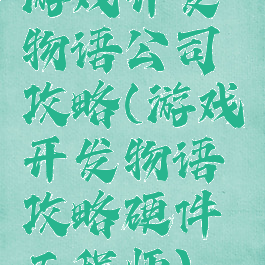 游戏开发
物语公司
攻略(游戏
开发物语
攻略硬件
工程师)